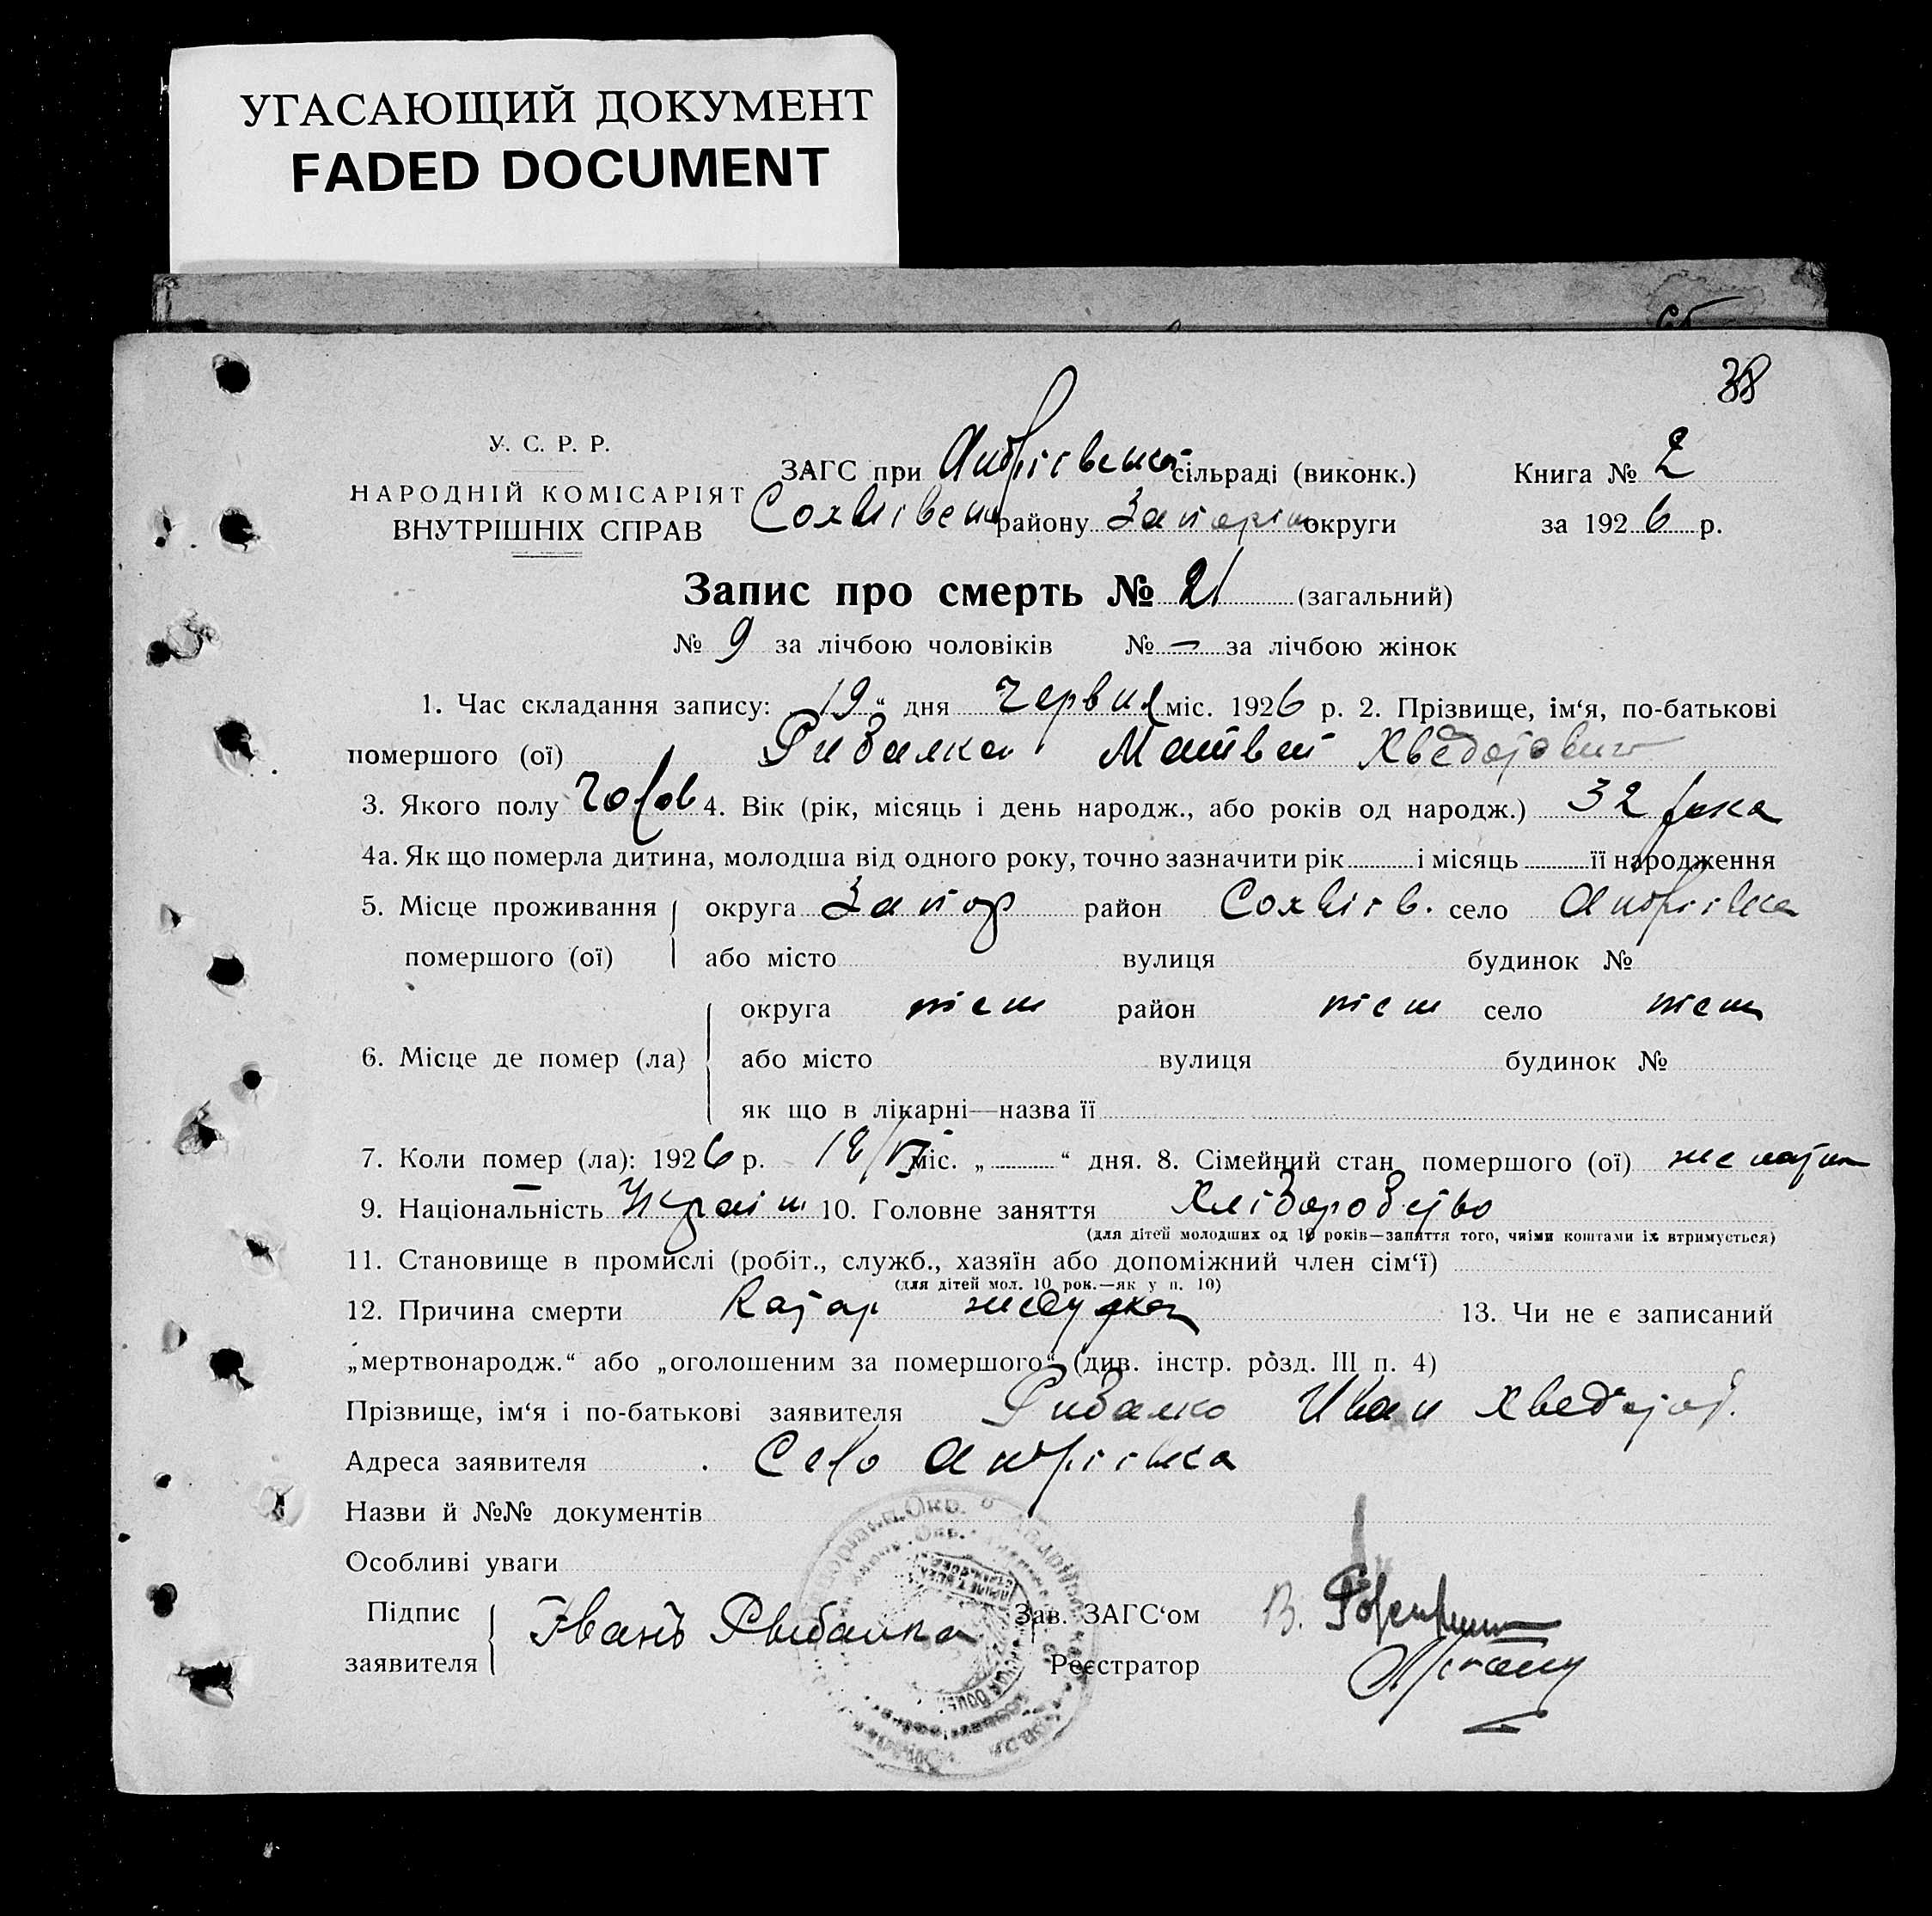 УГАСАЮЩИЙ ДОКУМЕНТ
FADED DOCUMENT
38
У. С. Р. Р.
НАРОДНІЙ КОМІСАРІЯТ
ВНУТРІШНІХ СПРАВ
ЗАГС при Андріївській сільраді (виконк.) Книга № 2
району Запоріж округи за 1926 р.
Запис про смерть № 21 (загальний)
№ 9 за лічбою чоловіків № — за лічбою жінок
1. Час складання запису: 19 “ дня червня міс. 1926 р. 2. Прізвище, ім‘я, по-батькові
помершого (ої) Рибалка Матвей Хведорович
3. Якого полу чолов 4. Вік (рік, місяць і день народж., або років од народж.) 32 рока
4а. Як що померла дитина, молодша від одного року, точно зазначити рік і місяць її народження
5. Місце проживання округа Запор район Софіів. село Андріівка
помершого (ої) або місто вулиця будинок №
округа тіеш район тіеш село тіеш
6. Місце де помер (ла) або місто вулиця будинок №
як що в лікарні—назва її
7. Коли помер (ла): 1926 р. 18/VI міс. „ “ дня. 8. Сімейний стан помершого (ої)
9. Національність Украін 10. Головне заняття Хліборобство
(для дітей молодших од 10 років—заняття того, чиїми коштами їх втримується)
11. Становище в промислі (робіт., служб., хазяїн або допоміжний член сім‘ї)
(для дітей мол. 10 рок.—як у п. 10)
12. Причина смерти Катар желудка 13. Чи не є записаний
„мертвонародж.“ або „оголошеним за помершого“ (див. інстр. розд. III п. 4)
Прізвище, ім‘я і по-батькові заявителя Рибалко Иван Хведоров.
Адреса заявителя Село Андріівка
Назви й №№ документів
Особливі уваги
Підпис Иванъ Рыбалка Зав. ЗАГС‘ом В.
заявителя Реєстратор